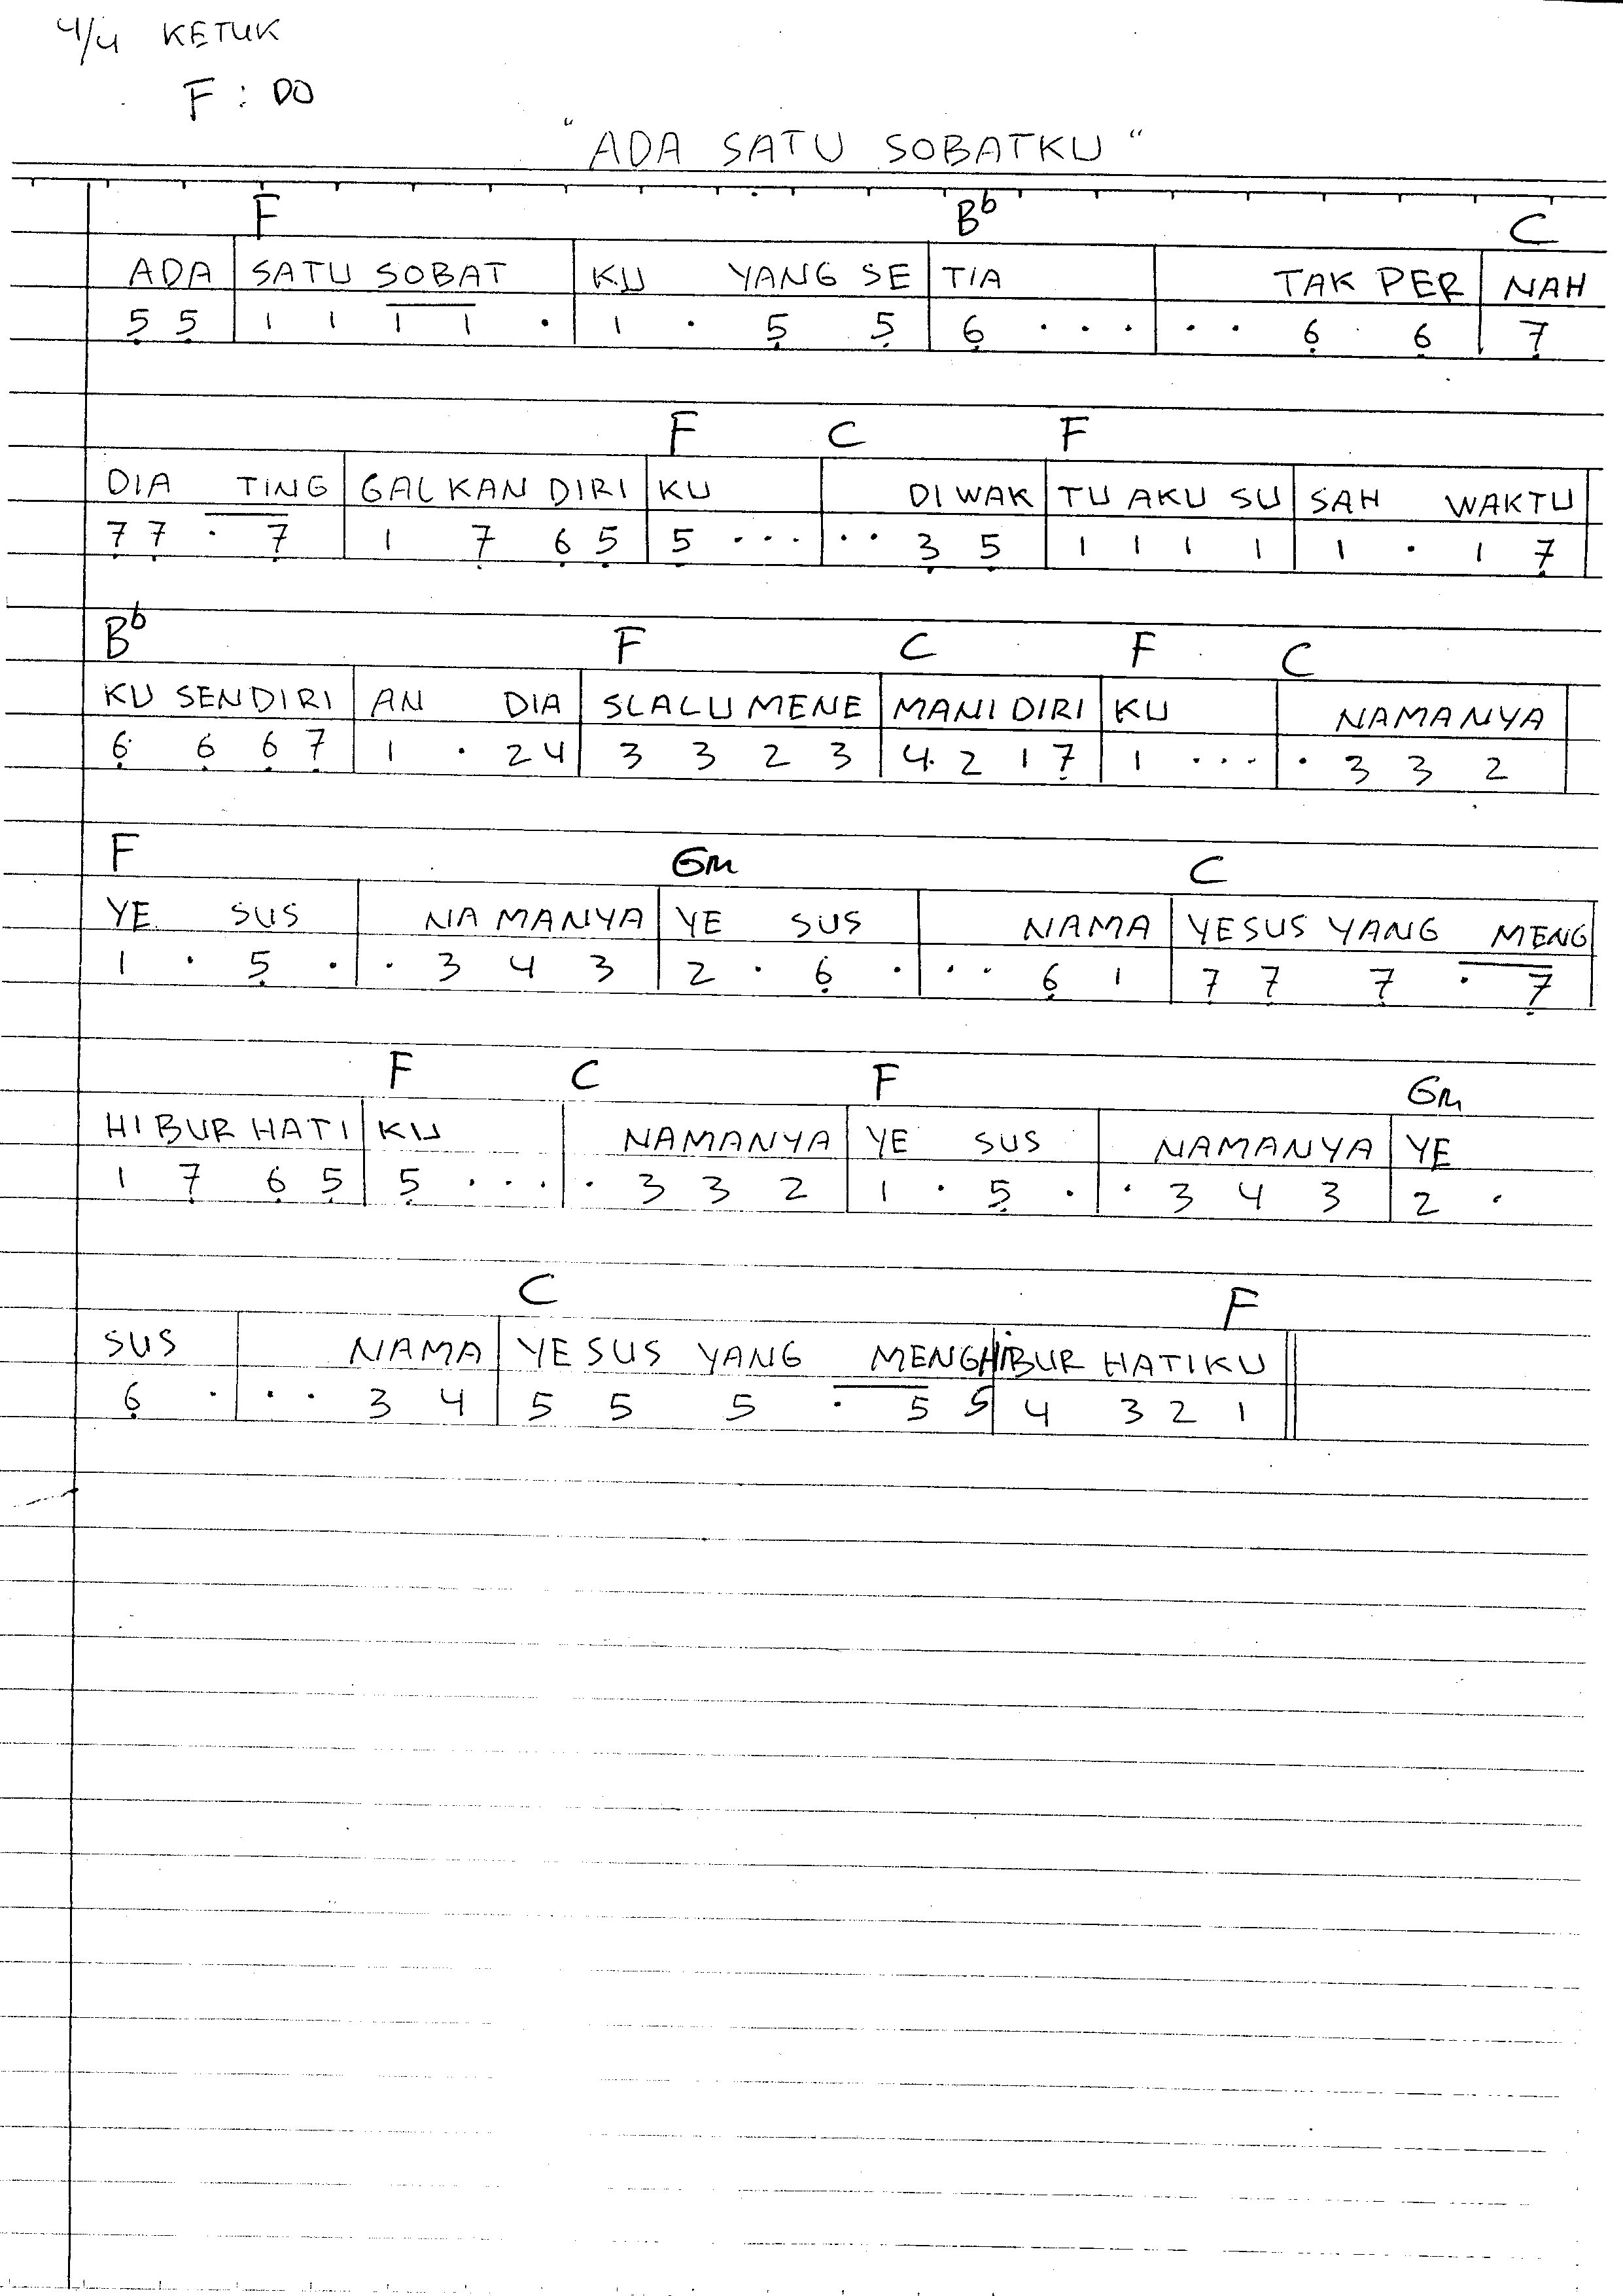 4/4 KETUK
F : DO
"ADA SATU SOBATKU"
F B♭ C
ADA | SATU SOBAT | KU YANG SE | TIA | TAK PER | NAH
5̣ 5̣ | 1 1 1 1 . | 1 . 5̣ 5̣ | 6̣ . . . | . . 6̣ 6̣ | 7̣
F C F
DIA TING | GALKAN DIRI | KU | DI WAK | TU AKU SU | SAH WAKTU |
7̣ 7̣ . 7̣ | 1 7̣ 6̣ 5̣ | 5̣ . . . | . . 3̣ 5̣ | 1 1 1 1 | 1 . 1 7̣ |
B♭ F C F C
KU SENDIRI | AN DIA | SLALU MENE | MANI DIRI | KU | NAMANYA |
6̣ 6̣ 6̣ 7̣ | 1 . 2 4 | 3 3 2 3 | 4. 2 1 7̣ | 1 . . . | . 3 3 2 |
F Gm C
YE SUS | NAMANYA | YE SUS | NAMA | YESUS YANG MENG |
1 . 5̣ . | . 3 4 3 | 2 . 6̣ . | . . 6̣ 1 | 7̣ 7̣ 7̣ . 7̣ |
F C F Gm
HIBUR HATI | KU | NAMANYA | YE SUS | NAMANYA | YE
1 7̣ 6̣ 5̣ | 5̣ . . . | . 3 3 2 | 1 . 5̣ . | . 3 4 3 | 2 .
C F
SUS | NAMA | YESUS YANG MENGHIBUR HATIKU ||
6̣ . | . . 3 4 | 5 5 5 . 5 5 | 4 3 2 1 ||